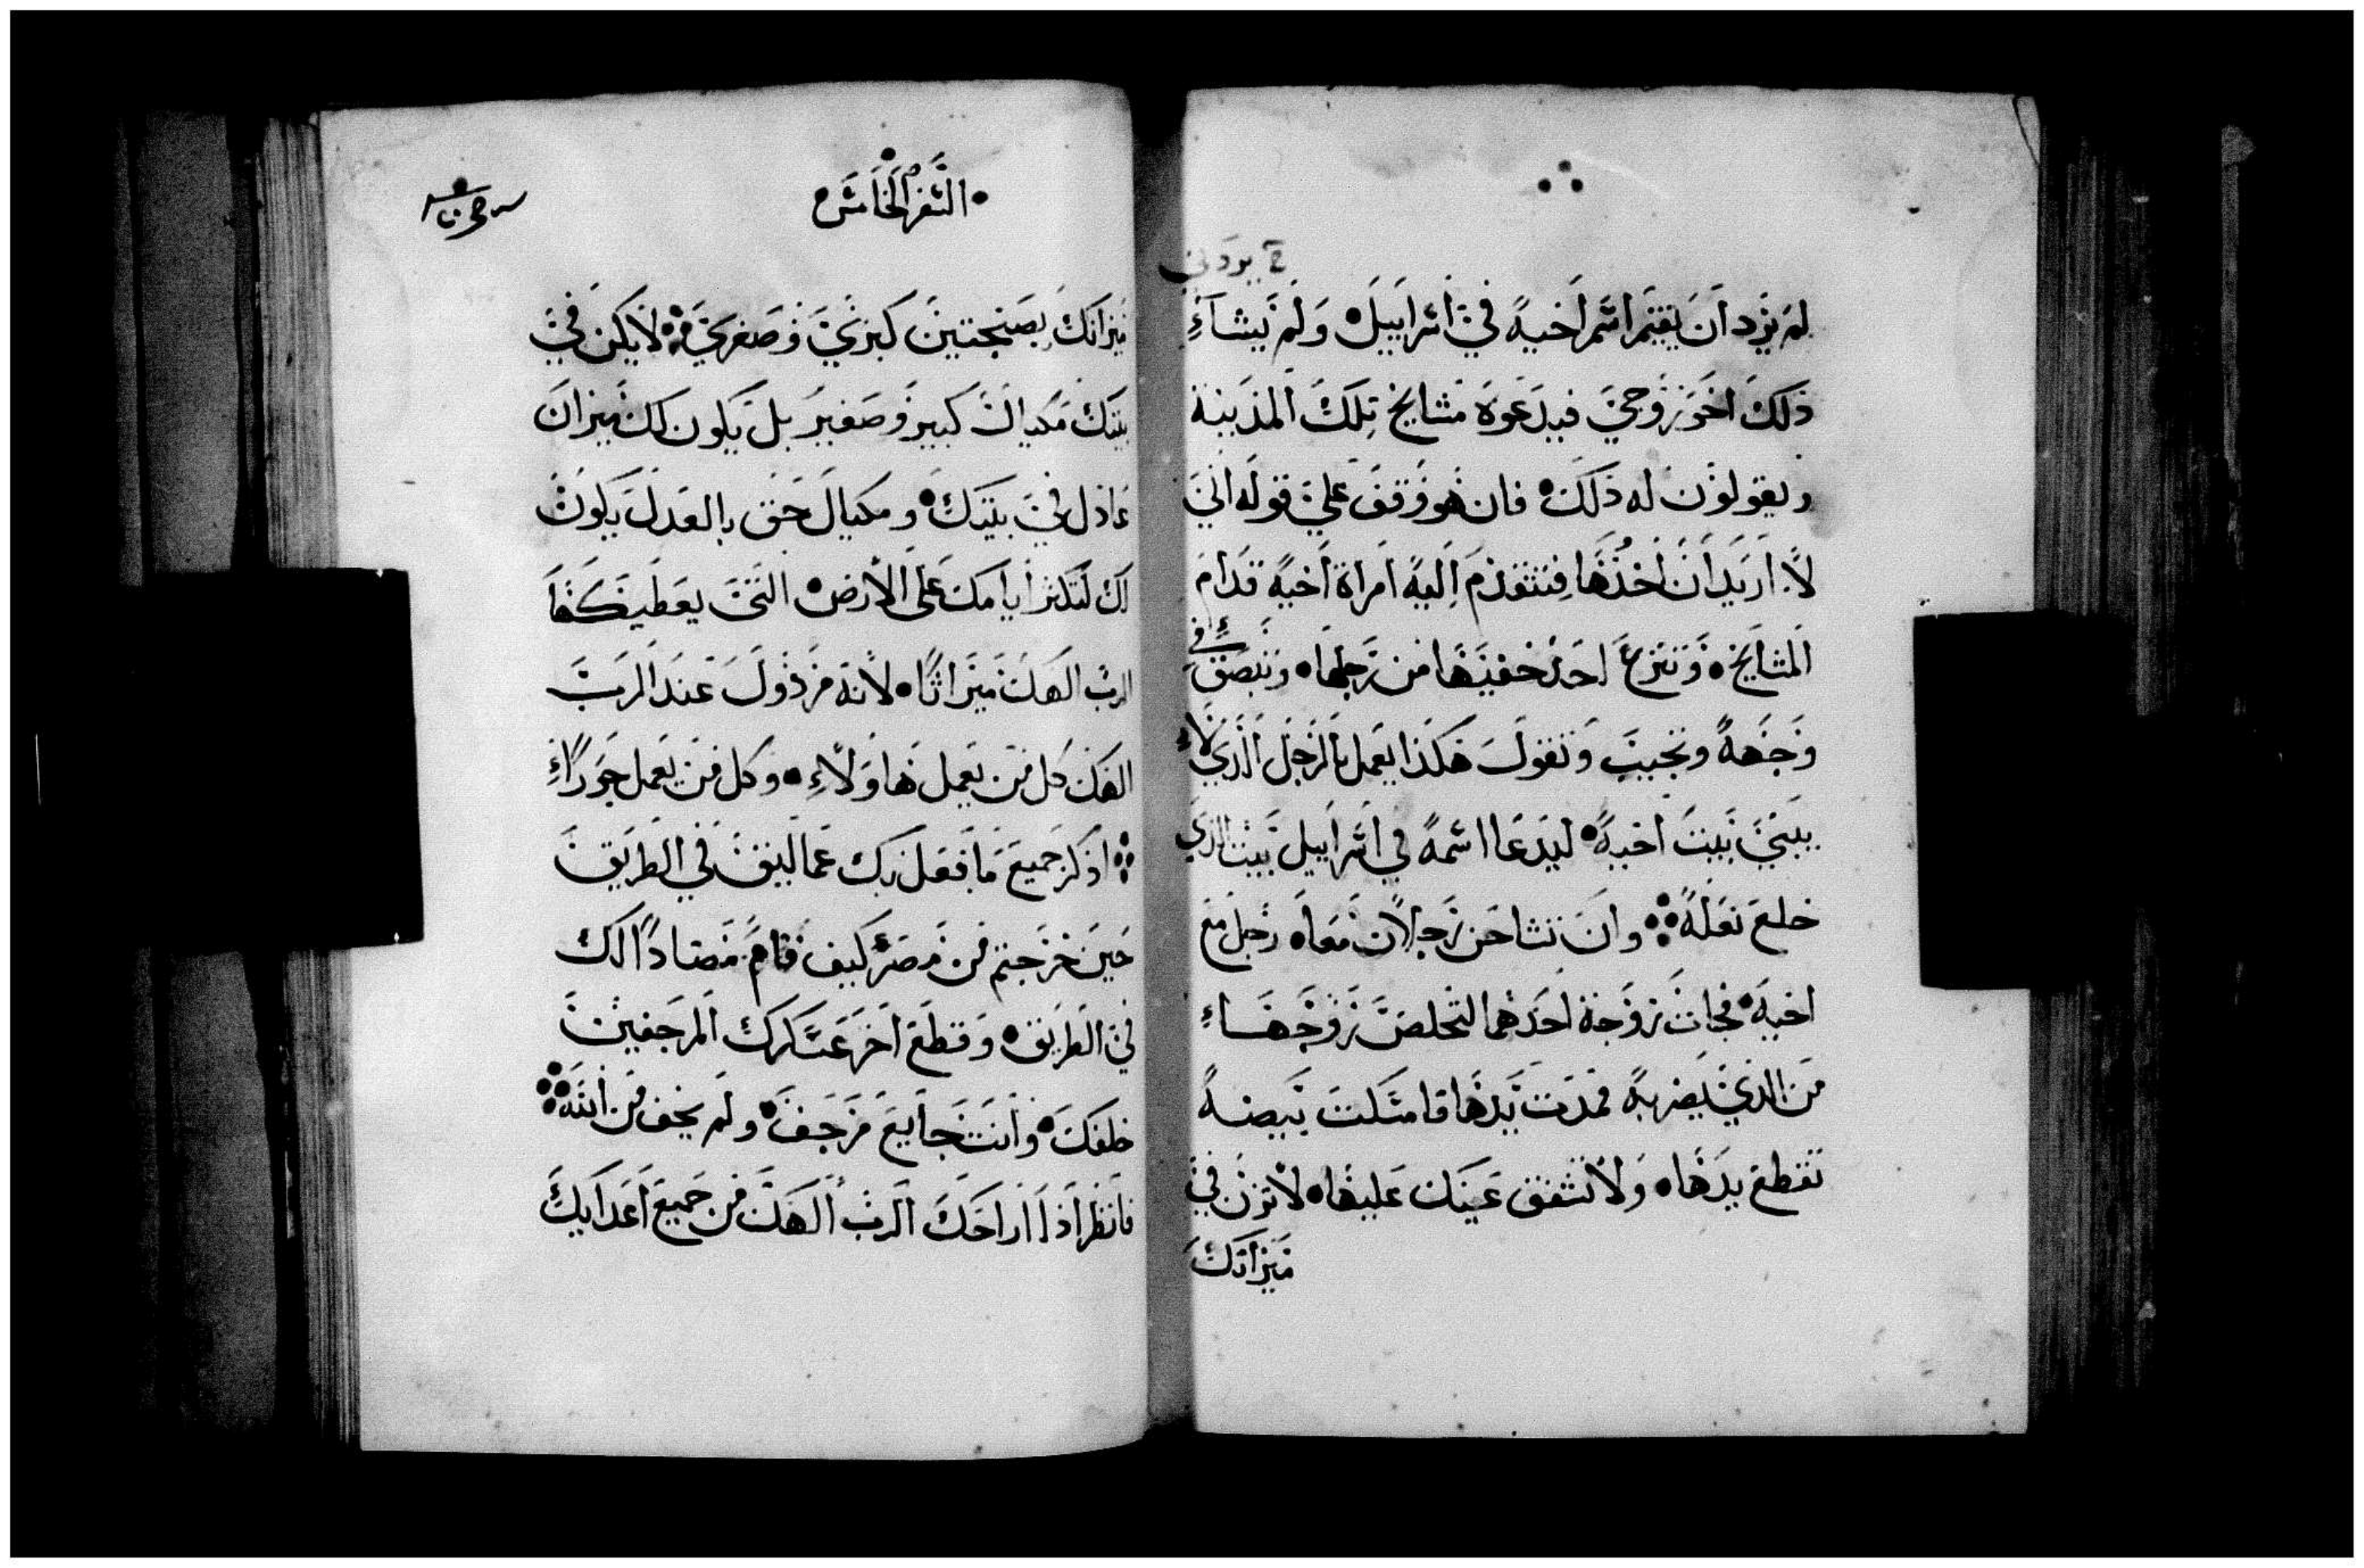 لم يرد ان يقيم اسم اخيه في اسراييل ولم يشاء
ذلك اخو زوجي فيدعوه مشايخ تلك المدينة
ويقولون له ذلك فان هو وقف علي قوله اني
لا اريد ان اخذها فتتقدم اليه امراة اخيه قدام
المشايخ وتنزع احد خفيها من رجلها وتبصق في
وجهه وتجيب وتقول هكذا يعمل بالرجل الذي لا
يبني بيت اخيه ليدعا اسمه في اسراييل بيت الذي
خلع نعله وان تشاحن رجلان معا رجل مع
اخيه فجات زوجة احدهما لتخلص زوجها
من الذي يضربه فمدت يدها فامسكت ببيضه
تقطع يدها ولا تشفق عينك عليها لا تزن في
ميزانك
السفر الخامس
ميزانك بصنجتين كبري وصغري لا يكن في
بيتك مكيال كبير وصغير بل يكون لك ميزان
عادل في بيتك ومكيال حق بالعدل يكون
لك لتكثر ايامك علي الارض التي يعطيكها
الرب الهك ميراثا لانه مرذول عند الرب
الهك كل من يعمل هاولاء وكل من يعمل جورا
اذكر جميع ما فعل بك عماليق في الطريق
حين خرجتم من مصر كيف قام مضادا لك
في الطريق وقطع اخر عسكرك المرجفين
خلفك وانت جايع مرجف ولم يخف من الله
فانظر اذا اراحك الرب الهك من جميع اعدايك